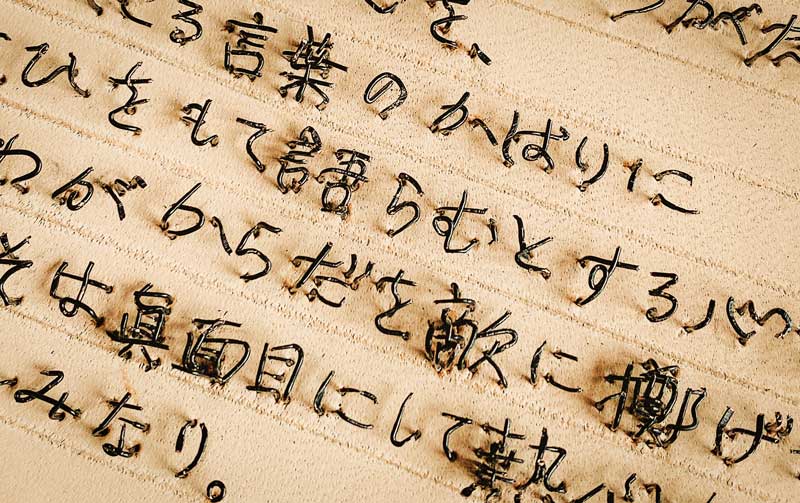 がた
を、
る言葉のかはりに
ひをもて語らむとする心
わがからだを敵に擲げ
そは眞面目にして熱心
みなり。